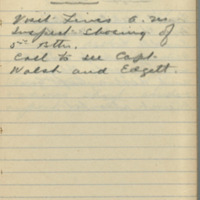 Visit Lines a.m.
Inspect shoeing of
5th Bttn.
Call to see Capt.
Walsh and Edgett.